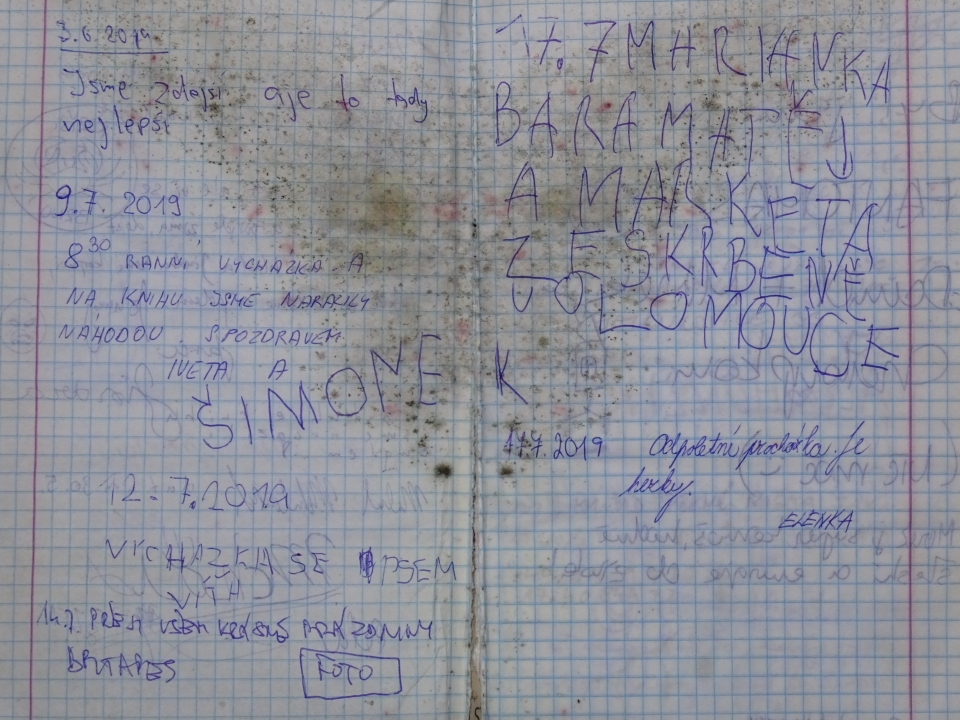 3.6.2019
Jsme zdejší aje to tady
nejlepší
9.7. 2019
8 30 RANNÍ VYCHÁZKA A
NA KNIHU JSME NARAZILY
NÁHODOU. S POZDRAVEM
IVETA A
ŠIMONEK
12.7.2019
VYCHÁZKA SE PSEM
VÍŤA
14.7. PŘEJI VŠEM KRÁSNÉ PRÁZDNINY
FOTO
17.7 MARIANKA
BARA MATEJ
A MARKETA
ZE SKRBENE
U OLOMOUCE
17.7.2019 Odpolední procházka. Je
hezky.
ELENKA